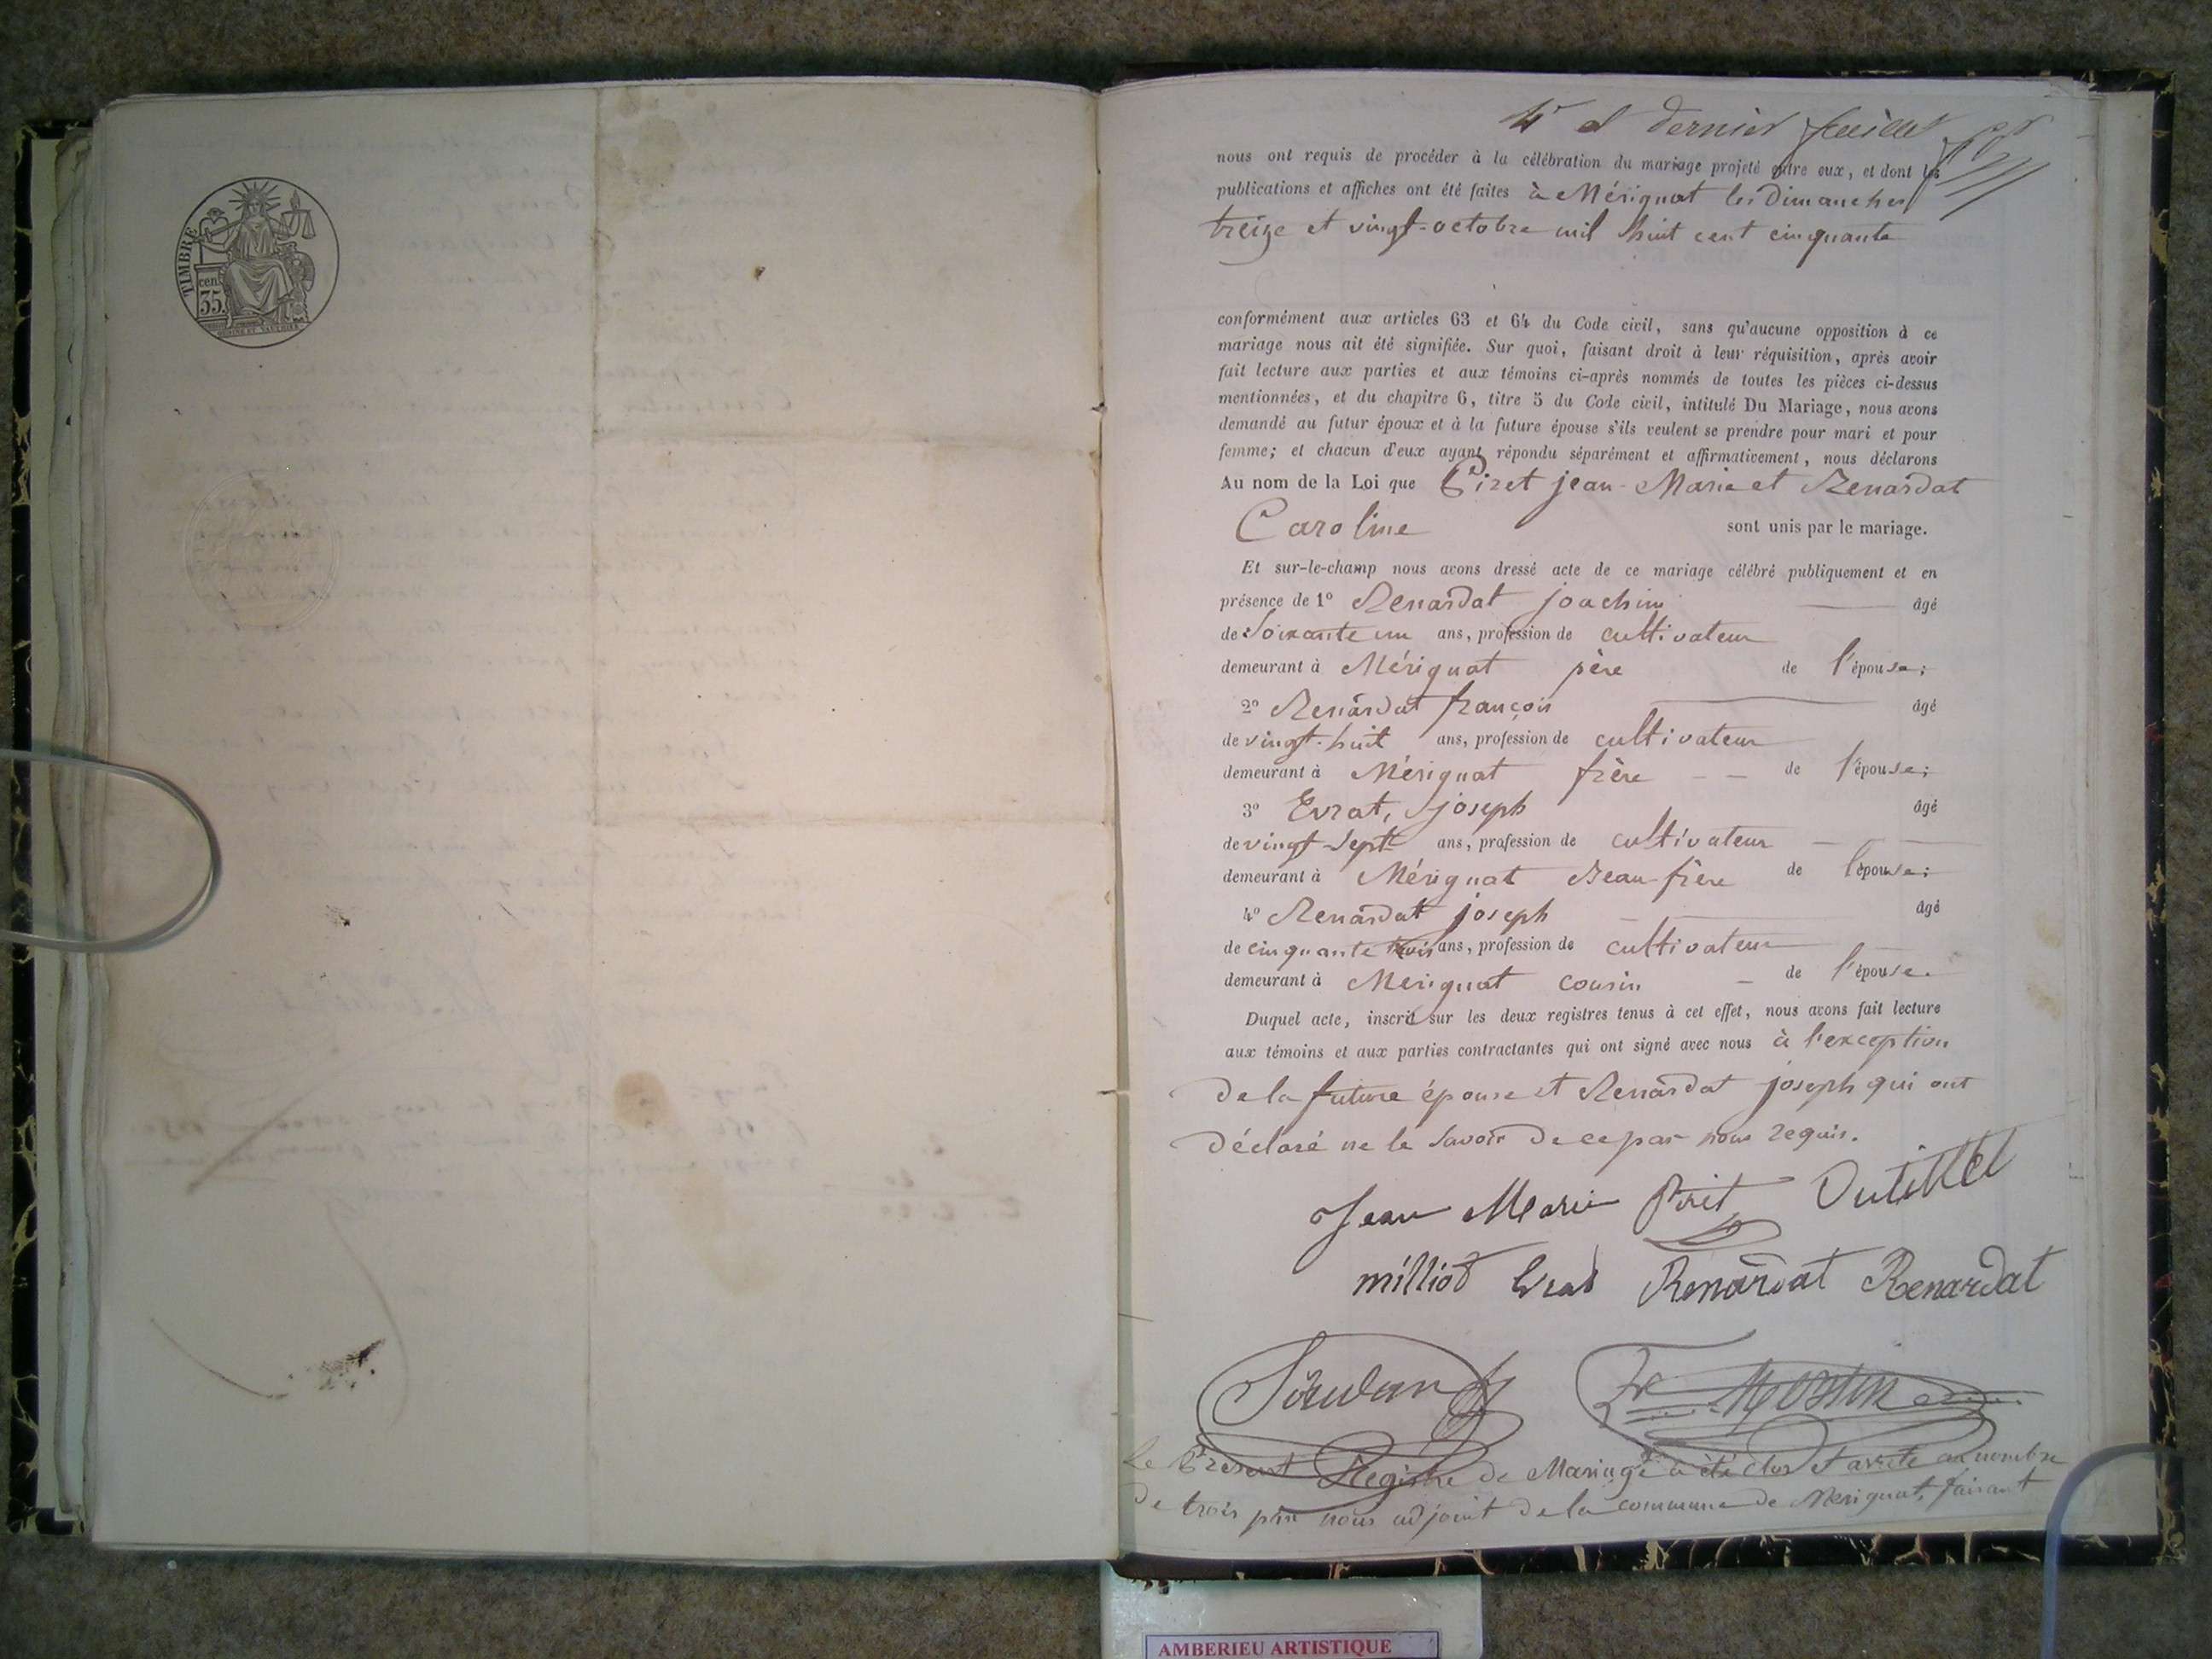 TIMBRE
cen.
35.
4e et dernier feuillet
nous ont requis de procéder à la célébration du mariage projeté entre eux, et dont les
publications et affiches ont été faites à Mérignat les Dimanches
treize et vingt-octobre mil huit cent cinquante
conformément aux articles 63 et 64 du Code civil, sans qu'aucune opposition à ce
mariage nous ait été signifiée. Sur quoi, faisant droit à leur réquisition, après avoir
fait lecture aux parties et aux témoins ci-après nommés de toutes les pièces ci-dessus
mentionnées, et du chapitre 6, titre 5 du Code civil, intitulé Du Mariage, nous avons
demandé au futur époux et à la future épouse s'ils veulent se prendre pour mari et pour
femme; et chacun d'eux ayant répondu séparément et affirmativement, nous déclarons
Au nom de la Loi que Piret jean-Marie et Renardat
Caroline sont unis par le mariage.
Et sur-le-champ nous avons dressé acte de ce mariage célébré publiquement et en
présence de 1º Renardat joachim âgé
de Soixante un ans, profession de cultivateur
demeurant à Mérignat père de l'épouse;
2º Renardat françois âgé
de vingt-huit ans, profession de cultivateur
demeurant à Mérignat frère de l'épouse;
3º Evrat, joseph âgé
de vingt-sept ans, profession de cultivateur
demeurant à Mérignat Beau-frère de l'épouse;
4º Renardat joseph âgé
de cinquante trois ans, profession de cultivateur
demeurant à Merignat cousin de l'épouse.
Duquel acte, inscrit sur les deux registres tenus à cet effet, nous avons fait lecture
aux témoins et aux parties contractantes qui ont signé avec nous à l'exception
de la future épouse et Renardat joseph qui ont
déclaré ne le savoir de ce par nous requis.
Jean Marie Piret Dutillel
milliot Evrat Renardat Renardat
Le Présent Registre de Mariage a été clos et arrêté au nombre
de trois par nous adjoint de la commune de Merignat, faisant
AMBERIEU ARTISTIQUE